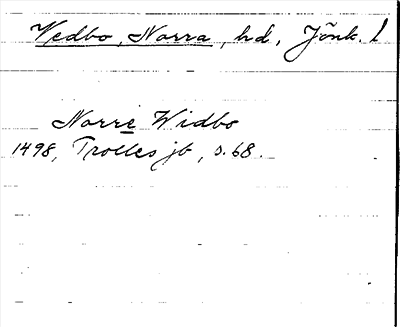 Vedbo, Norra, hd, Jönk. l
Norre Widbo
1498, Trolles jb, s. 68.